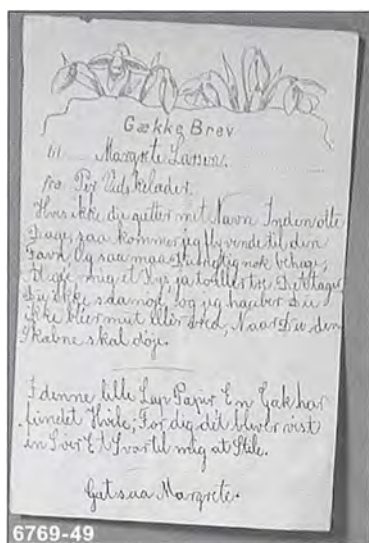 Gække Brev
til Margrete Larsen.
fra Per Vidskelader.
Hvis ikke du gætter mit Navn Inden otte
Dage, saa kommer jeg flyvende til din
Favn Og saa maa Du nok behage,
At give mig et Kys ja to eller tre Det tager
Du ikke saa nöje, og jeg haaber Du
ikke bliver mut eller vred, Naar Du den
Skæbne skal döje.
I denne lille Lap Papir En Gæk har
fundet Hvile, For dig det bliver vist
en Svær Et Svar til mig at Stile.
Gæt saa Margrete.
6769-49